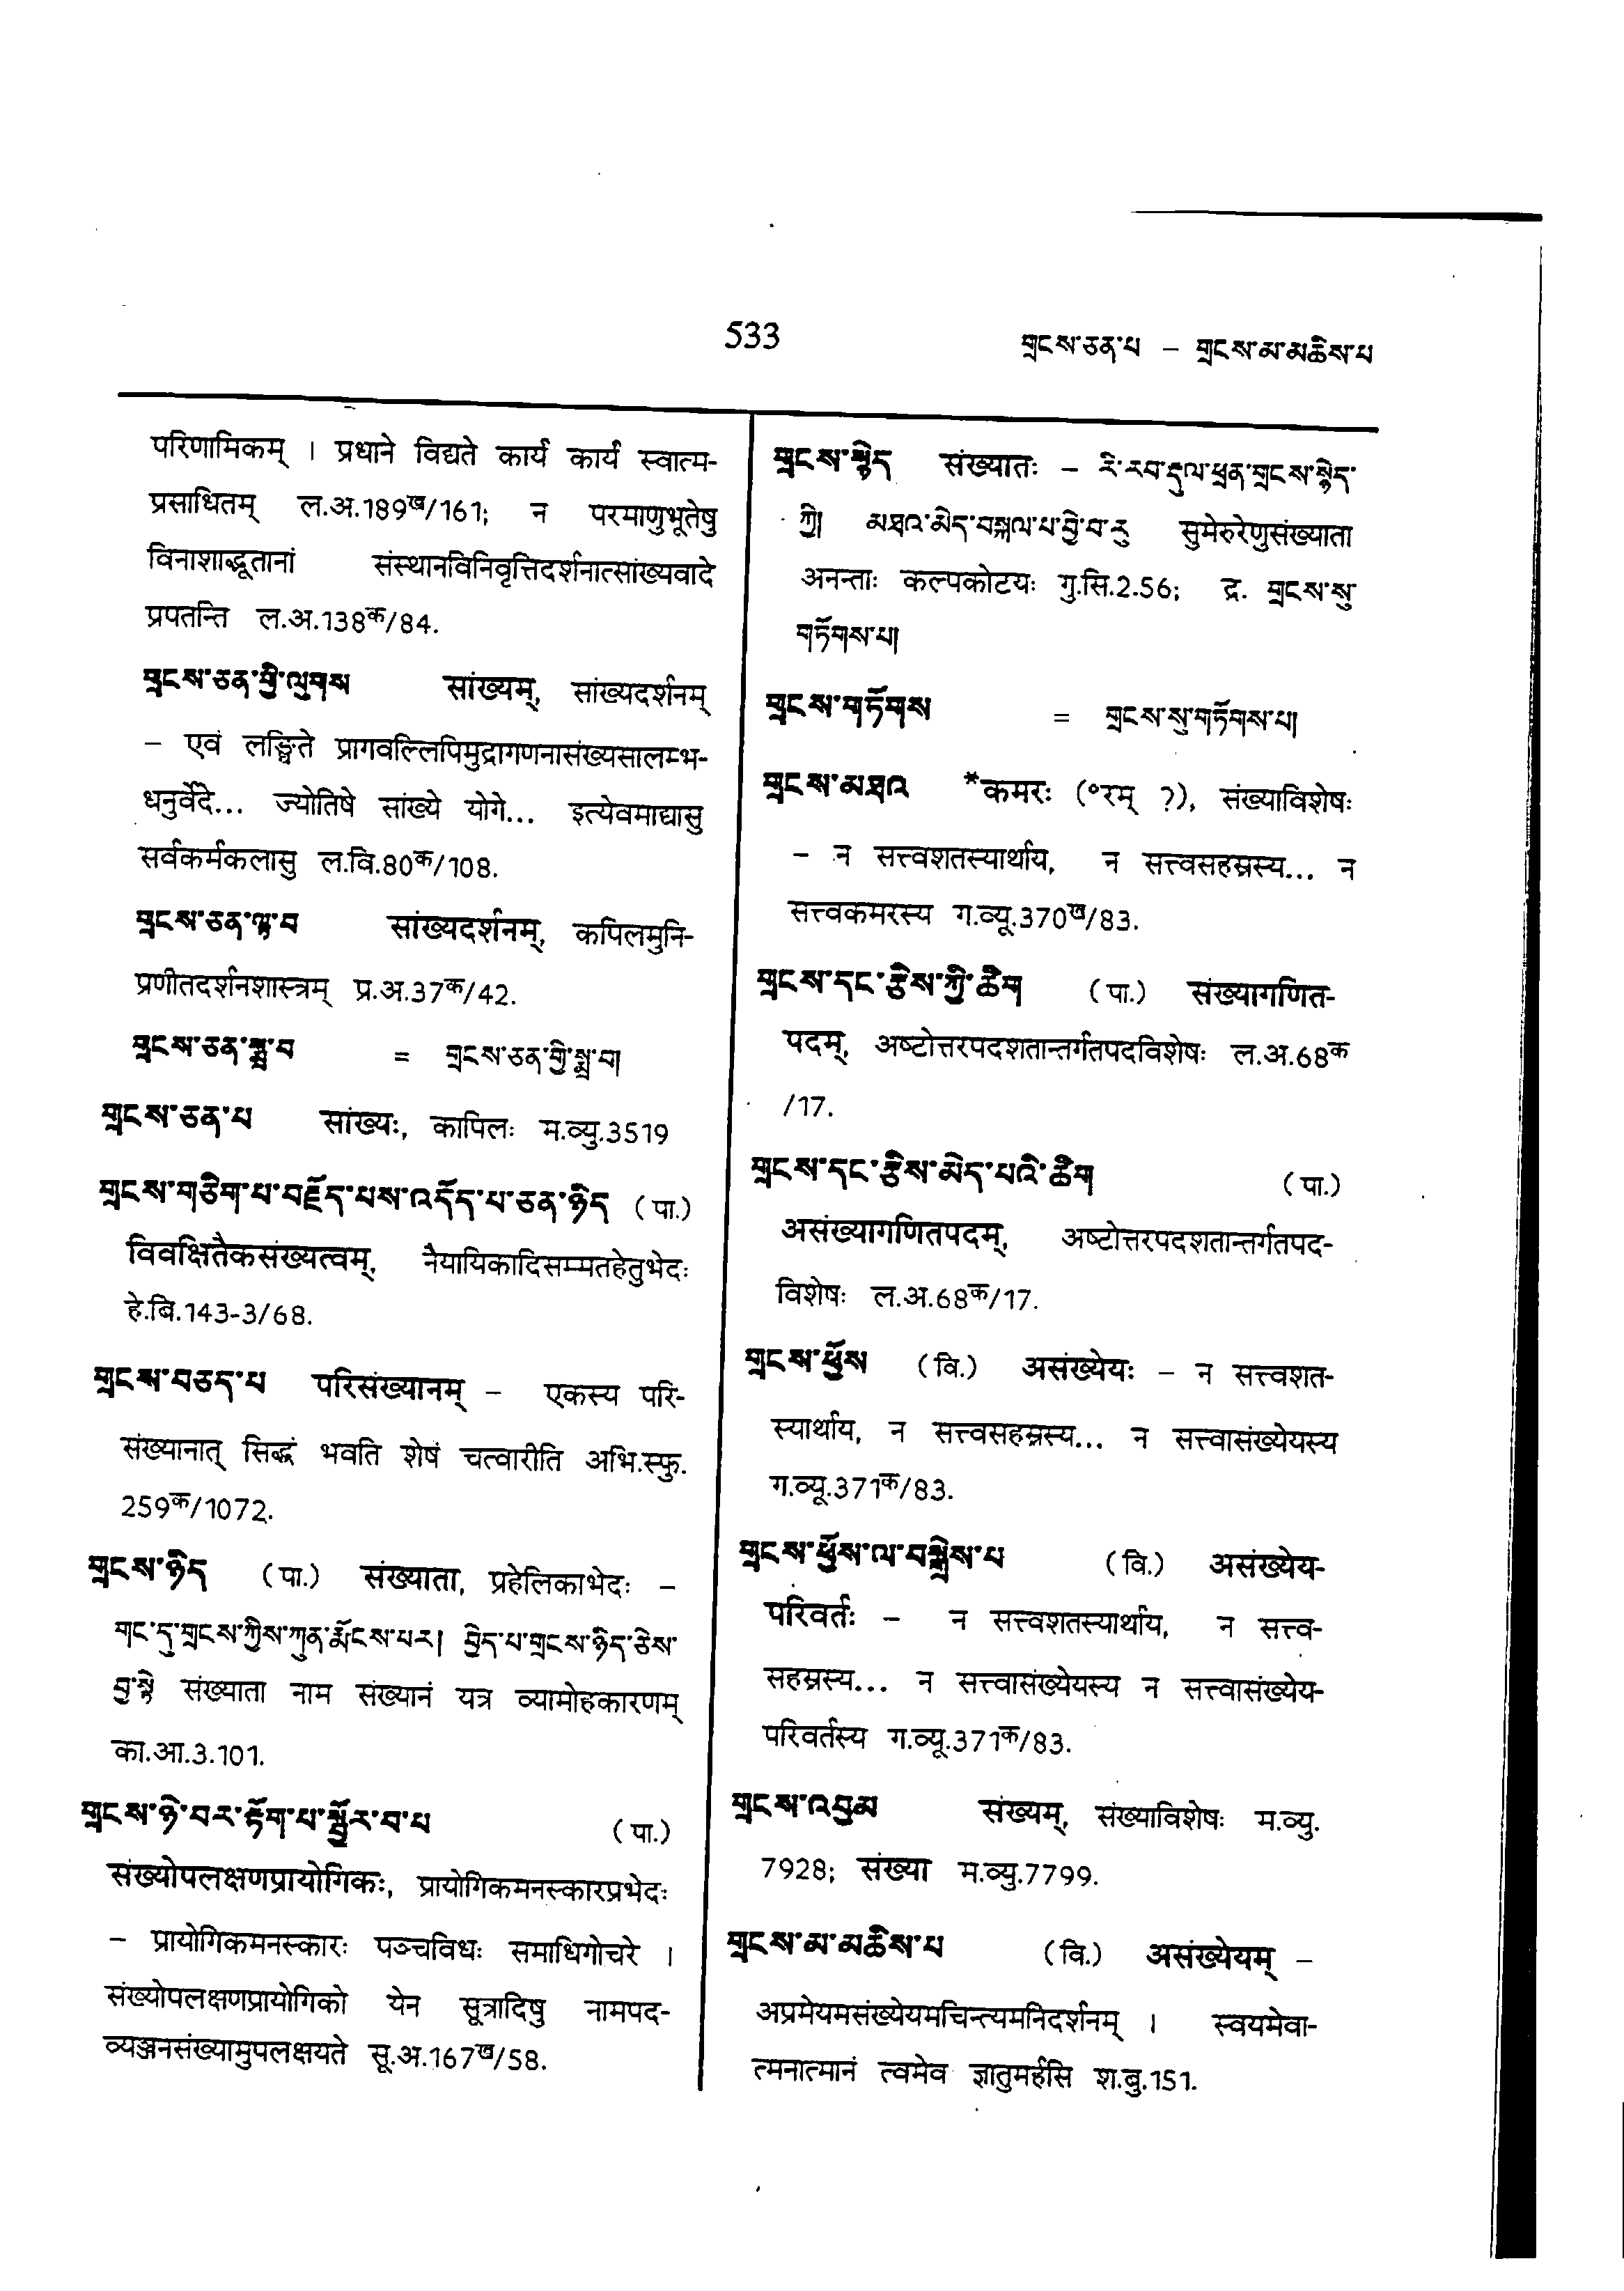 533
གྲངས་ཅན་པ – གྲངས་མ་མཆིས་པ
परिणामिकम् । प्रधाने विद्यते कार्यं कार्यं स्वात्म-
प्रसाधितम् ल.अ.189ख/161; न परमाणुभूतेषु
विनाशाद्भूतानां संस्थानविनिवृत्तिदर्शनात्सांख्यवादे
प्रपतन्ति ल.अ.138क/84.
གྲངས་ཅན་གྱི་ལུགས सांख्यम्, सांख्यदर्शनम्
– एवं लङ्घिते प्रागवल्लिपिमुद्रागणनासंख्यसालम्भ-
धनुर्वेदे... ज्योतिषे सांख्ये योगे... इत्येवमाद्यासु
सर्वकर्मकलासु ल.वि.80क/108.
གྲངས་ཅན་ལྟ་བ सांख्यदर्शनम्, कपिलमुनि-
प्रणीतदर्शनशास्त्रम् प्र.अ.37क/42.
གྲངས་ཅན་སྨྲ་བ = གྲངས་ཅན་གྱི་སྨྲ་བ།
གྲངས་ཅན་པ सांख्यः, कापिलः म.व्यु.3519
གྲངས་གཅིག་པ་བརྗོད་པས་འདོད་པ་ཅན་ཉིད (पा.)
विवक्षितैकसंख्यत्वम्, नैयायिकादिसम्मतहेतुभेदः
हे.बि.143-3/68.
གྲངས་བཅད་པ परिसंख्यानम् – एकस्य परि-
संख्यानात् सिद्धं भवति शेषं चत्वारीति अभि.स्फु.
259क/1072.
གྲངས་ཉིད (पा.) संख्याता, प्रहेलिकाभेदः –
གང་དུ་གྲངས་ཀྱིས་ཀུན་རྨོངས་པར། བྱེད་པ་གྲངས་ཉིད་ཅེས་
བྱ་སྟེ संख्याता नाम संख्यानं यत्र व्यामोहकारणम्
का.आ.3.101.
གྲངས་ཉེ་བར་རྟོག་པ་སྦྱོར་བ་པ (पा.)
संख्योपलक्षणप्रायोगिकः, प्रायोगिकमनस्कारप्रभेदः
– प्रायोगिकमनस्कारः पञ्चविधः समाधिगोचरे ।
संख्योपलक्षणप्रायोगिको येन सूत्रादिषु नामपद-
व्यञ्जनसंख्यामुपलक्षयते सू.अ.167ख/58.
གྲངས་སྙེད संख्यातः – རི་རབ་རྡུལ་ཕྲན་གྲངས་སྙེད་
ཀྱི། མཐའ་མེད་བསྐལ་པ་བྱེ་བ་རུ सुमेरुरेणुसंख्याता
अनन्ताः कल्पकोटयः गु.सि.2.56; द्र. གྲངས་སུ་
གཏོགས་པ།
གྲངས་གཏོགས = གྲངས་སུ་གཏོགས་པ།
གྲངས་མཐའ *कमरः (°रम् ?), संख्याविशेषः
– न सत्त्वशतस्यार्थाय, न सत्त्वसहस्रस्य... न
सत्त्वकमरस्य ग.व्यू.370ख/83.
གྲངས་དང་རྩིས་ཀྱི་ཚིག (पा.) संख्यागणित-
पदम्, अष्टोत्तरपदशतान्तर्गतपदविशेषः ल.अ.68क
/17.
གྲངས་དང་རྩིས་མེད་པའི་ཚིག (पा.)
असंख्यागणितपदम्, अष्टोत्तरपदशतान्तर्गतपद-
विशेषः ल.अ.68क/17.
གྲངས་ཕྱོས (वि.) असंख्येयः – न सत्त्वशत-
स्यार्थाय, न सत्त्वसहस्रस्य... न सत्त्वासंख्येयस्य
ग.व्यू.371क/83.
གྲངས་ཕྱོས་ལ་བསྒྲེས་པ (वि.) असंख्येय-
परिवर्तः – न सत्त्वशतस्यार्थाय, न सत्त्व-
सहस्रस्य... न सत्त्वासंख्येयस्य न सत्त्वासंख्येय-
परिवर्तस्य ग.व्यू.371क/83.
གྲངས་འབུམ संख्यम्, संख्याविशेषः म.व्यु.
7928; संख्या म.व्यु.7799.
གྲངས་མ་མཆིས་པ (वि.) असंख्येयम् –
अप्रमेयमसंख्येयमचिन्त्यमनिदर्शनम् । स्वयमेवा-
त्मनात्मानं त्वमेव ज्ञातुमर्हसि श.बु.151.